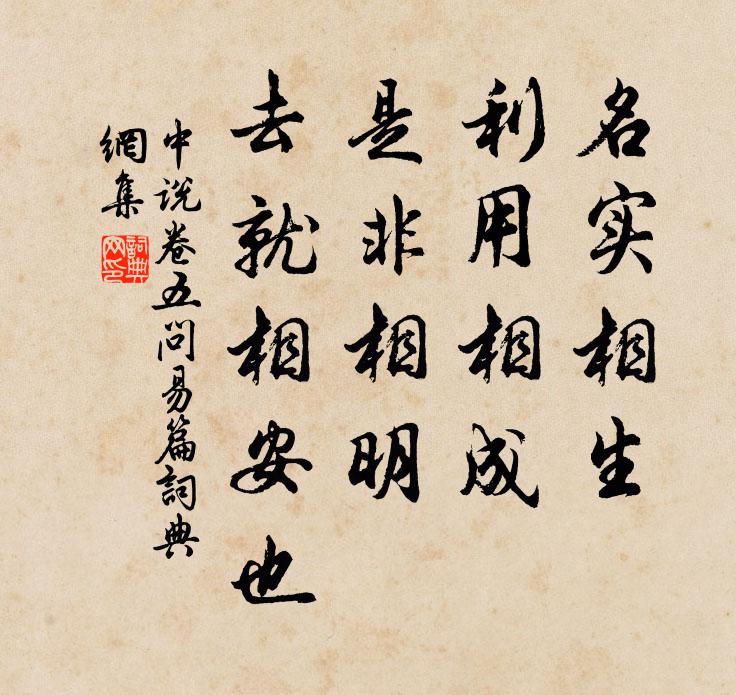 名实相生
利用相成
是非相明
去就相安也
中说卷五问易篇詞典
網集
詞典
网印